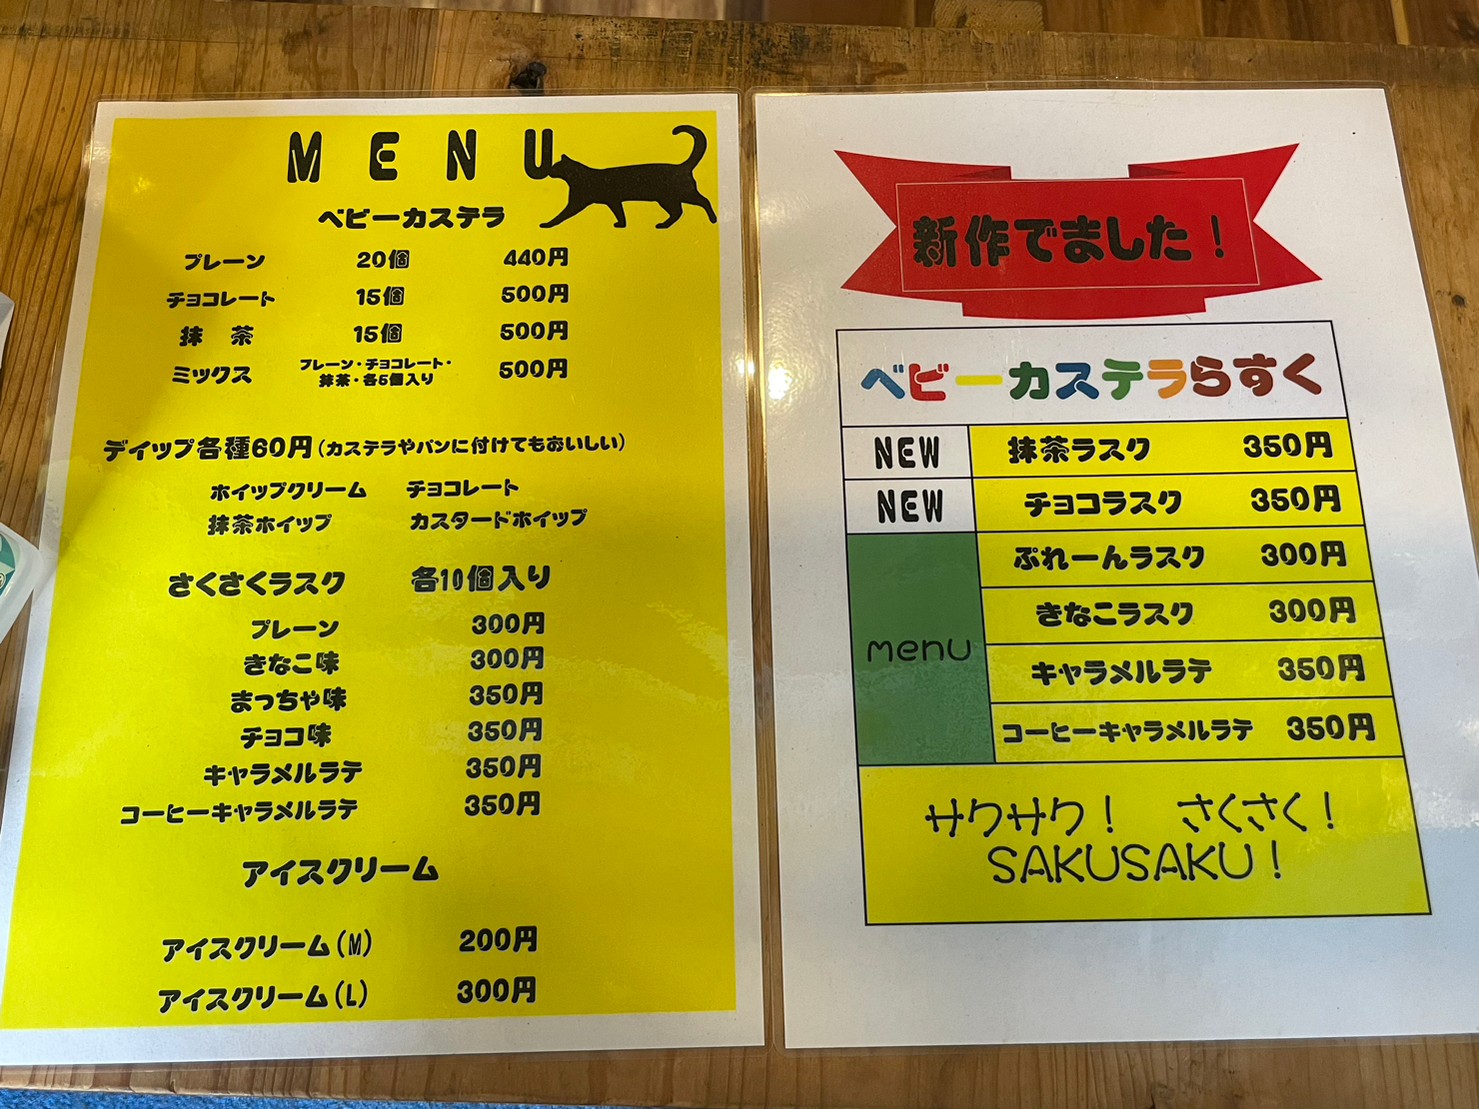 MENU
ベビーカステラ
プレーン 20個 440円
チョコレート 15個 500円
抹 茶 15個 500円
ミックス プレーン・チョコレート・ 500円
抹茶・各5個入り
デイップ各種60円(カステラやパンに付けてもおいしい)
ホイップクリーム チョコレート
抹茶ホイップ カスタードホイップ
さくさくラスク 各10個入り
プレーン 300円
きなこ味 300円
まっちゃ味 350円
チョコ味 350円
キャラメルラテ 350円
コーヒーキャラメルラテ 350円
アイスクリーム
アイスクリーム(M) 200円
アイスクリーム(L) 300円
新作でました！
ベビーカステラらすく
NEW 抹茶ラスク 350円
NEW チョコラスク 350円
menu
ぷれーんラスク 300円
きなこラスク 300円
キャラメルラテ 350円
コーヒーキャラメルラテ 350円
サクサク！ さくさく！
SAKUSAKU！